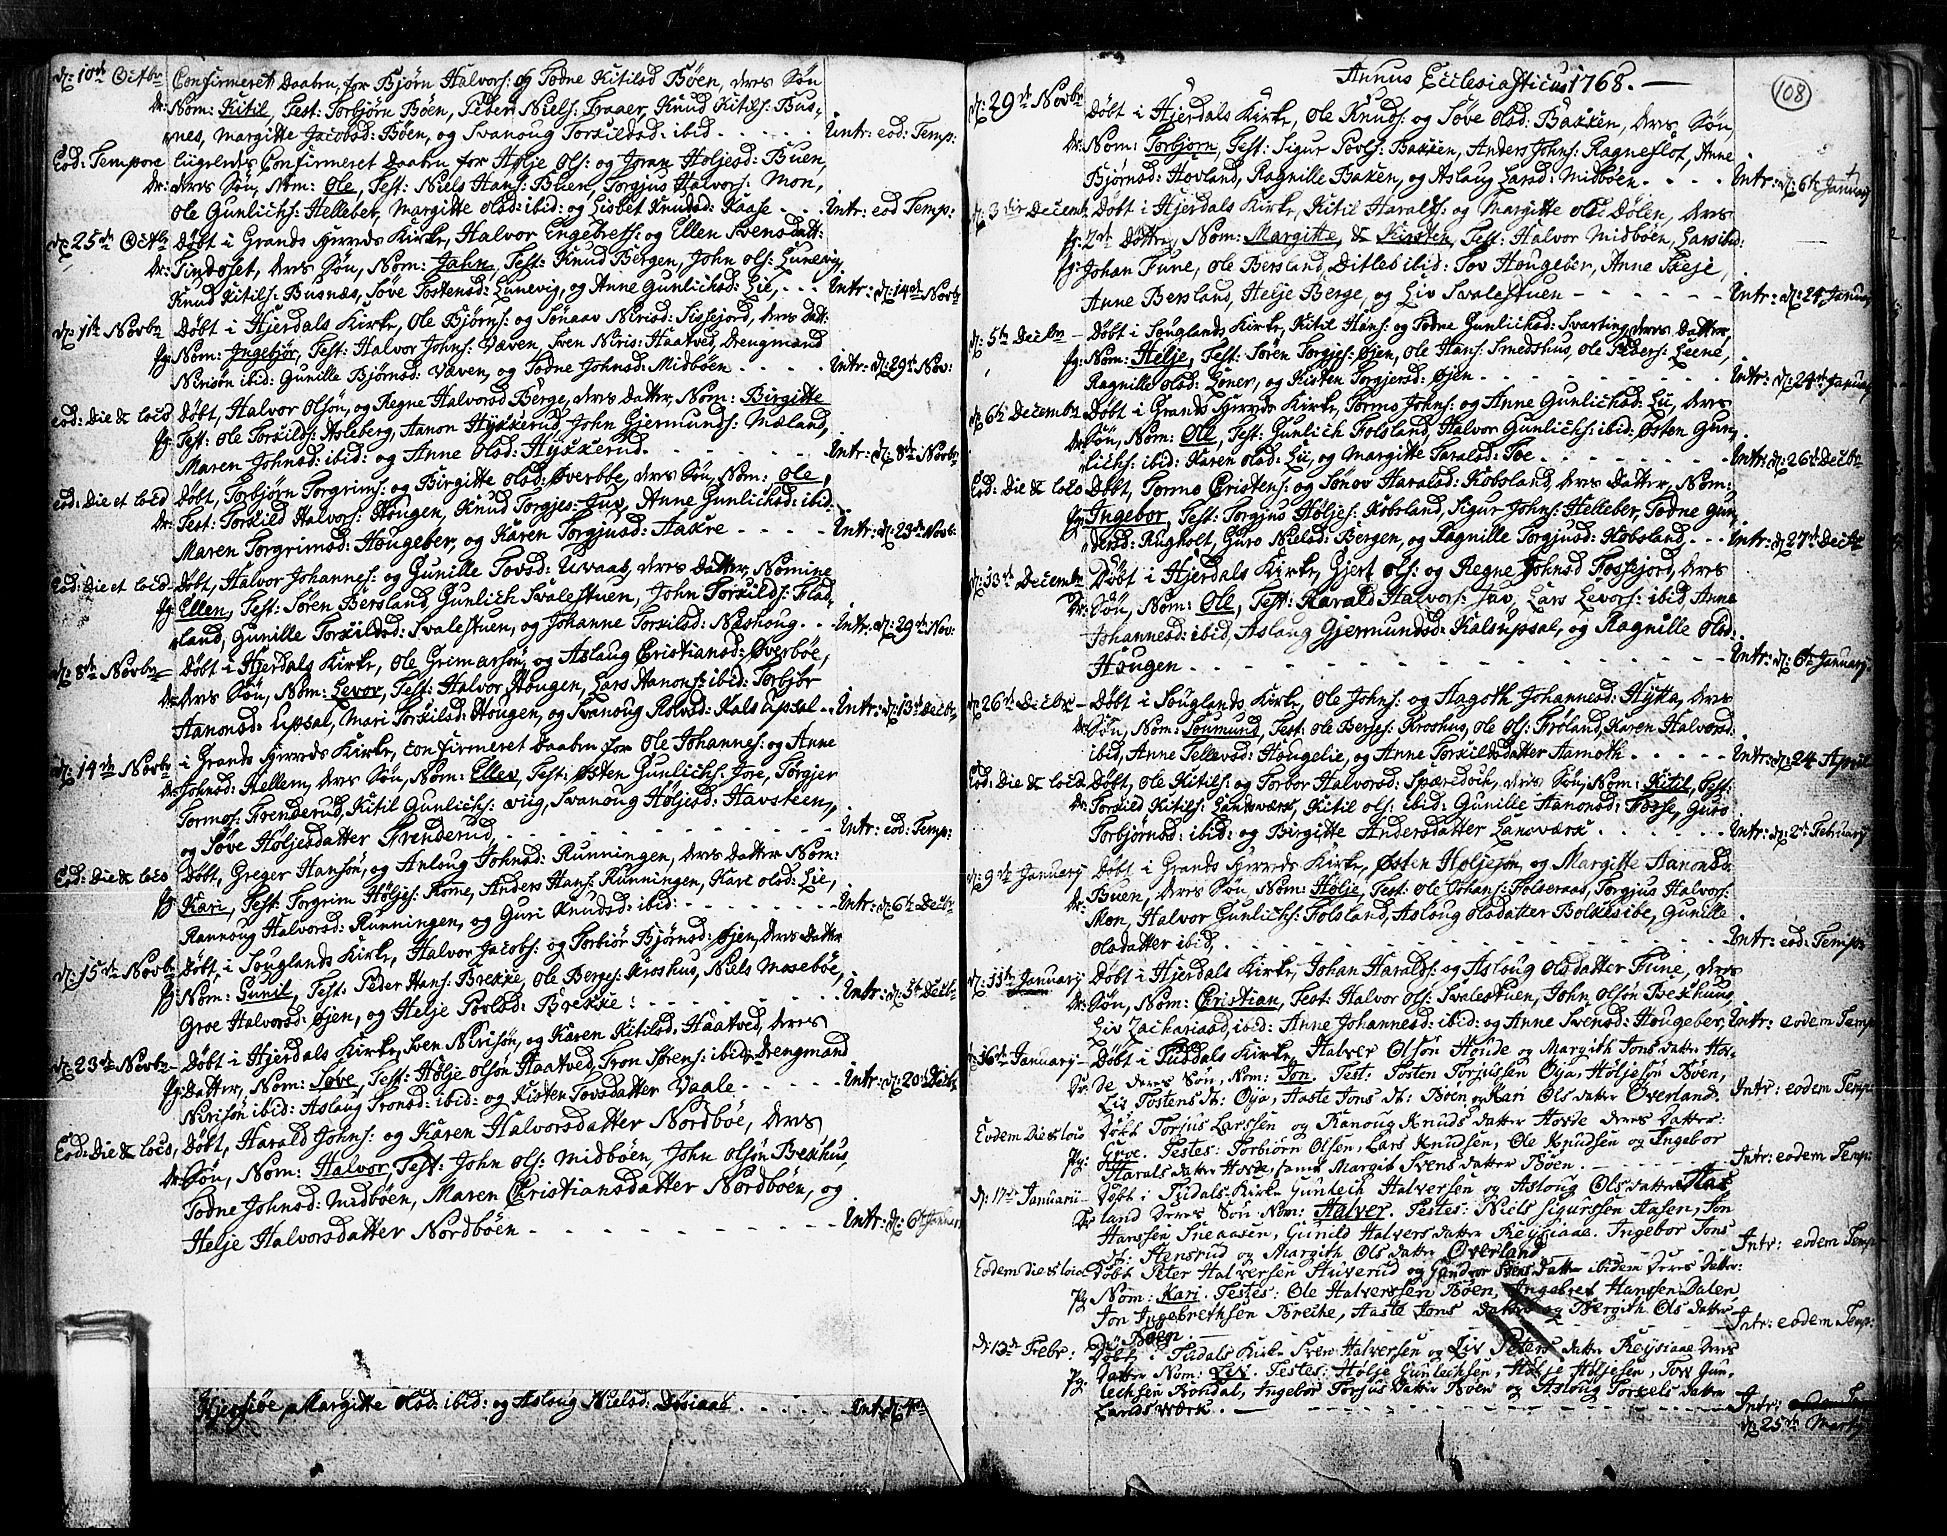 d: 10de Octbr Confirmeret Daaben for Bjørn Halvors: og Todne Kitilsd Bøen, deres Søn
Dr: Nom: Kitil, Test: Torbjørn Bøen, Peder Niels: Traaer, Knud Kitils: Bus-
nes, Margitte Jacobsd: Bøen, og Svanoug Torkilsd: ibid Intr: eod: Temp:
Eod: Tempore ligeledes Confirmeret Daaben for Hølje Ols: og Joran Høljesd: Buen,
Dr: deres Søn, Nom: Ole, Test: Niels Hans: Buen, Torgjus Halvors: Mon,
Ole Gunlichs: Helleber, Margitte Olsd: ibid: og Lisbet Knudsd: Kaase Intr: eod Temp:
d: 25de Octbr Døbt i Grands Herreds Kirke, Halvor Engebrets: og Ellen Svensdatt:
Dr: Tindoset, deres Søn, Nom: Jahn, Test: Knud Bergen, John Ols: Lunevig,
Knud Kitils: Busnæs, Søve Tostensd: Lunevig, og Anne Gunlichsd: Lie, Intr: d: 14de Novbr
d: 1ste Novbr Døbt i Hjerdals Kirke, Ole Bjørns: og Sønaav Nirisd: Sissejord, deres Datt:
pg: Nom: Ingebjør, Test: Halvor Johns: Væven, Sven Niris: Haatved, Drengmand
Nirisøn ibid: Gunille Bjørnsd: Væven, og Todne Johnsd: Midbøen Intr: d: 29de Nov:
eod: Die & loco Døbt, Halvor Olsøn, og Regne Halvorsd Berge, deres Datter, Nom: Birgitte
pg: Test: Ole Torkilds: Asleberg, Aanon Hykkerud, John Gjermunds: Mæland,
Maren Johnsd: ibid: og Anne Olsd: Hykkerud. Intr: d: 8de Novbr
eod: Die et loco Døbt, Torbjørn Torgrims: og Birgitte Olsd: Øverbøe, deres Søn, Nom: Ole,
Dr: Test: Torkild Halvors: Hougen, Knud Torgjes: Juv, Anne Gunlichsd: ibid:
Maren Torgrimsd: Hougeber, og Karen Torgjusd: Aakre Intr: d: 23de Novb:
Eod: Die et loco Døbt, Halvor Johannes: og Gunille Tovsd: Uvaas, deres Datter, Nomine
pg: Ellen, Test: Søren Bersland, Gunlich Svalestuen, John Torkilds: Flad-
land, Gunille Torkildsd: Svalestuen, og Johanne Torkilsd: Næshoug Intr: d: 29de Nov:
d: 8de Novbr Døbt i Hjerdals Kirke, Ole Grimarsøn, og Aslaug Christiansd: Øverbøe,
Dr: deres Søn, Nom: Levor, Test: Halvor Hougen, Lars Aanons: ibid: Torbjør
Aanonsd: Upsal, Mari Torkilsd: Hougen, og Svanoug Rolvsd: Kalsupsal Intr: d: 13de Decbr
d: 14de Novbr i Grands Herreds Kirke, Confirmeret Daaben for Ole Johannes: og Anne
Dr: Johnsd: Hellem, deres Søn, Nom: Ellev, Test: Østen Gunlichs: Jore, Torgjer
Tormos: Frenderud, Kitil Gunlichs: viig, Svanoug Høljesd: Havsteen,
og Søve Høljesdatter Frenderud Intr: eod: Temp:
Eod: Die & loco Døbt, Greger Hansøn, og Anloug Johnsd: Runningen, deres Datter Nom:
pg: Kari, Test: Torgrim Høljes: Kome, Anders Hans: Runningen, Kari Olsd: Lie,
Rannoug Halvorsd: Runningen, og Guri Knudsd: ibid: Intr: d: 6te Decbr
d: 15de Novbr Døbt, i Souglands Kirke, Halvor Jacobs: og Torbiør Bjørnsd: Øjen, deres Datter
pg: Nom: Gunil, Test: Peder Hans: Brekke, Ole Berges: Kroshus, Niels Mosebøe,
Groe Halvorsd: Øjen, og Helje Povlsd: Brekke: Intr: d: 5te Decbr
d: 23de Novbr Døbt i Hjerdals Kirke, Sven Nirisøn, og Karen Kitilsd: Haatved, deres
pg: Datter, Nom: Søve, Test: Hølje Olsøn Haatved, Tron Sørens: ibid: Drengmand
Nirisøn ibid: Aslaug Tronsd: ibid: og Kisten Tovsdatter Vaale Intr: d: 20de Decbr
Eod: Die & loco, Døbt, Harald Johns: og Karen Halvorsdatter Nordbøe, deres
Dr: Søn, Nom: Halvor, Test: John Ols: Midbøen, John Olsøn Bekhus,
Todne Johnsd: Midbøen, Maren Christiansdatter Nordbøen, og
Helje Halvorsdatter Nordbøen Intr: d: 6te Januar
Hjersiøe, Margitte Olsd: ibid: og Aslaug Nielsd: Døsiaae Intr: d: 4de
Annus Ecclesiasticus 1768.
108
d: 29de Novbr Døbt i Hjerdals Kirke, Ole Knuds: og Søve Olsd: Bakken, deres Søn
Dr: Nom: Torbjørn, Test: Sigur Povls: Bakken, Anders Johns: Ragneslot, Anne
Bjørnsd: Hovland, Ragnille Baken, og Aslaug Larsd: Midbøen Intr: d: 6te January
d: 3die Decemb: Døbt i Hjerdals Kirke, Kitil Haralds: og Margitte Olsd Dølen, deres
pg: 2de Døttre, Nom: Margitte, & Kirsten, Test: Halvor Midbøen, Lars ibid:
pg: Johan Tune, Ole Bersland, Ditleb ibid: Tov Hougeber, Anne Skeje,
Anne Bersland, Helje Berge, og Liv Svalestuen Intr: d: 24 Januar
d: 5te Decbr Døbt i Souglands Kirke, Kitil Hans: og Todne Gunlichsd: Svarting, deres Datter,
pg: Nom: Helje, Test: Søren Torgjes: Øjen, Ole Hans: Smedshus, Ole Peders: Leene,
Ragnille Olsd: Loner, og Kisten Torgjersd: Øjen Intr: d: 24de January
d: 6te Decembr Døbt i Grands Herreds Kirke, Tormo Johns: og Anne Gunlichsd: Lie, deres
Dr: Søn, Nom: Ole, Test: Gunlich Folsland, Halvor Gunlichs: ibid: Østen Gun-
lichs: ibid: Karen Olsd: Lie, og Margitte Taralsd: Toe Intr: d: 26de Decbr
Eod: Die & loco Døbt, Tormo Cristens: og Sønov Haralsd: Kobsland, deres Datter, Nom:
pg: Ingebor, Test: Torgjus Høljes: Kobsland, Sigur Johns: Helleber, Todne Gun-
dersd: Rugholt, Guro Nielsd: Bergen, og Ragnille Torgjusd: Kobsland Intr: d: 27de Decbr
d: 13de Decembr Døbt i Hjerdals Kirke, Gjert Ols: og Regne Johnsd Fossejord, deres
Dr: Søn, Nom: Ole, Test: Harald Halvors: Juv, Lars Levors: ibid Anne
Johannesd: ibid, Aslaug Gjermundsd: Kalsupsal, og Ragnille Olsd:
Hougen Intr: d: 6te January
d: 26de Decbr Døbt i Souglands Kirke, Ole Johns: og Hagoth Johannesd: Hytta, deres
Dr: Søn, Nom: Soumund, Test: Ole Berges: Kroshus, Ole Ols: Froland, Karen Halvorsd
ibid, Anne Tellevsd: Hougelie, og Anne Torkildsdatter Aamoth Intr: d: 24 April
Eod: Die & loco Døbt, Ole Kitils: og Torbor Halvorsd: Sperredock, deres Søn, Nom: Kitil, Test:
Dr: Torkild Kitils: Landsværk, Kitil Ols: ibid: Gunille Aanonsd: Fosse, Guro
Torbjørnsd: ibid: og Birgitte Andersdatter Lansværk Intr: d: 2de February
d: 9de January Døbt i Grands Herreds Kirke, Østen Høljesøn, og Margitte Aanonsd:
Dr: Buen, deres Søn, Nom: Hølje, Test: Ole Johans: Folseraas, Torgjus Halvors:
Mon, Halvor Gunlichs: Folsland, Asloug Olsdatter Bolkesibe, Gunille
Olsdatter ibid, Intr: eod: Temp:
d: 11te January Døbt i Hjerdals Kirke, Johan Haralds: og Asloug Olsdatter Tune, deres
Dr: Søn, Nom: Christian, Test: Halvor Ols: Svalestuen, John Olsøn Bekhuus,
Liv Zachariasd, ibid: Anne Johannesd: ibid: og Anne Svensd: Hougeber, Intr: eodem Temp
d: 16de January Døbt i Tuddals Kirke, Halver Olsøn Hovde og Margith Jons datter Hov-
Dr: de deres Søn, Nom: Jon. Test: Tosten Torjussen Øya, Høljesøn Bøen,
Liv Tostens Dt: Øya, Haste Jons Dt: Bøen og Kari Ols datter Øverland. Intr: eodem Temp:
Eodem Die & loco Døbt Torjus Larssen og Ranoug Knuds datter Hovde deres Datter:
Pg: Groe. Testes: Torbiørn Olsen, Lars Knudsen, Ole Knudsen og Ingebor
Harals datter Hovde, samt Margit Svens datter Bøen. Intr: eodem Temp:
d: 17de Januarii Døbt i Tudals Kirke Gunlech Halversen og Asloug Ols datter Haf-
Dr: land Deres Søn Nom: Halver. Testes: Niels Sigurssen Aasen, Jon
Hanssen Sneaasen, Gunild Halvers datter Reysiaae. Ingebor Jons
dt: Stensrud og Margith Ols datter Øverland Intr: eodem Temp
Eodem Die & loco Døbt Peter Halversen Huverud og Gundvor Svens datter ibidem Deres Datter:
Pg: Nom: Kari. Testes: Ole Halversen Bøen, Ingebret Hanssen Dalen,
Jon Ingebrethsen Breike, Haste Jons datter og Bergith Ols datter
Bøen. Intr: eodem Temp:
d: 13de Febr: Døbt i Tudals Kirke Sven Halversen og Liv Peters datter Reysiaae deres
Pg: datter Nom: Liv. Testes: Hølje Gunlechsen, Hølje Høljesen, Tov Gun-
lechsen Bohdal, Ingebor Torjus datter Bøen og Asloug Torkels datter
Lands værk. Intr: eodem Temp
d: 25de Marty